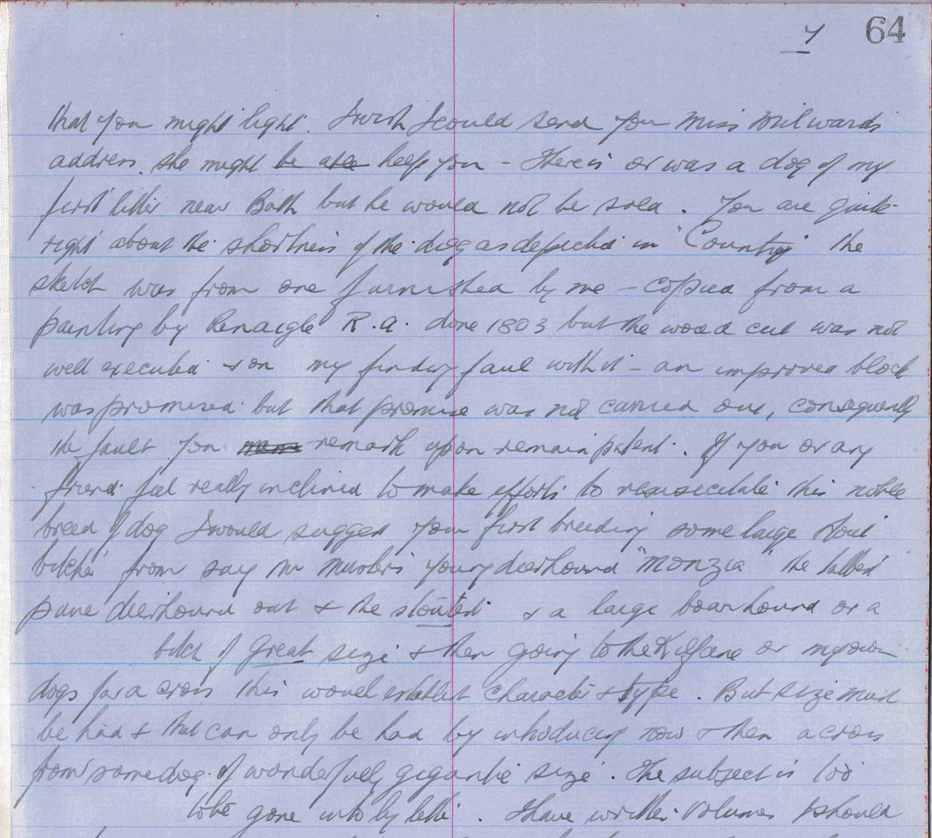 7 64
that you might light. I wish I could send you Miss Milwards
address. she might be able help you - There is or was a dog of my
first litter near Bath but he would not be sold. You are quite
right about the shortness of the dog as depicted in "Country" the
sketch was from one furnished by me - copied from a
painting by Renaigle R.A. done 1803 but the wood cut was not
well executed & on my finding fault with it - an improved block
was promised but that promise was not carried out, consequently
the fault you remark upon remain patent. If you or any
friend feel really inclined to make efforts to resuscitate this noble
breed of dog I would suggest your first breeding some large
bitches from say Mr young deerhound "Monzia" the tallest
pure deerhound out & the stoutest & a large boarhound or a
bitch of great size & then going to the Kilfane or my own
dogs for a cross this would establish character & type. But size must
be had & that can only be had by introducing now & then a cross
from some dog of wonderfully gigantic size. The subject is too
to be gone into by letter. I have written volumes & should